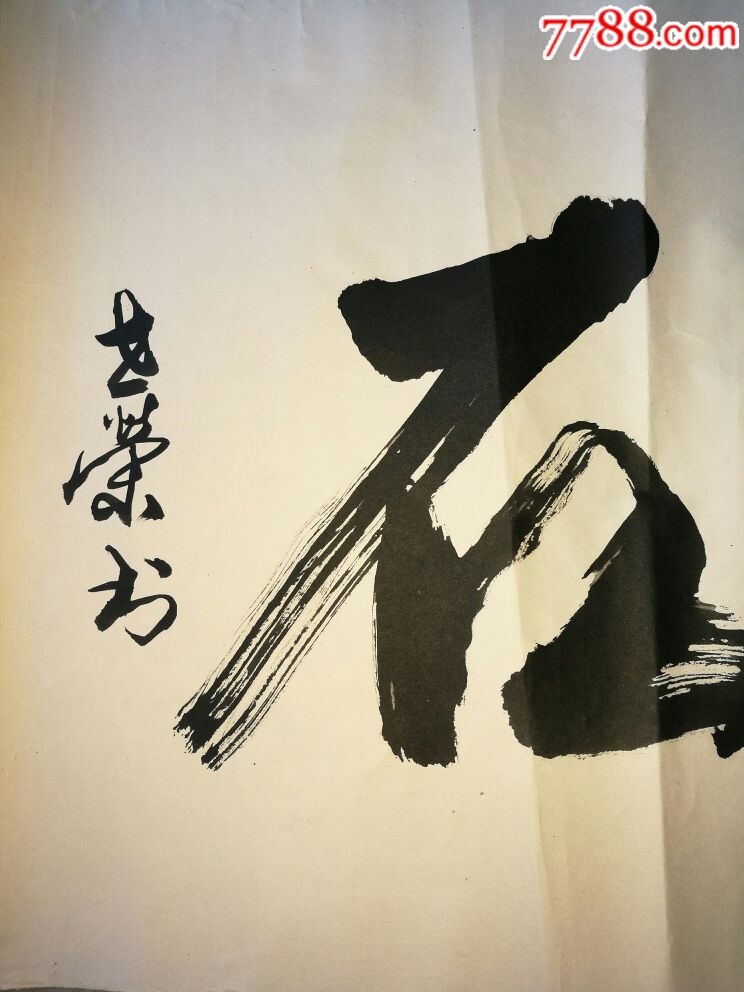 7788.com
石
世荣书